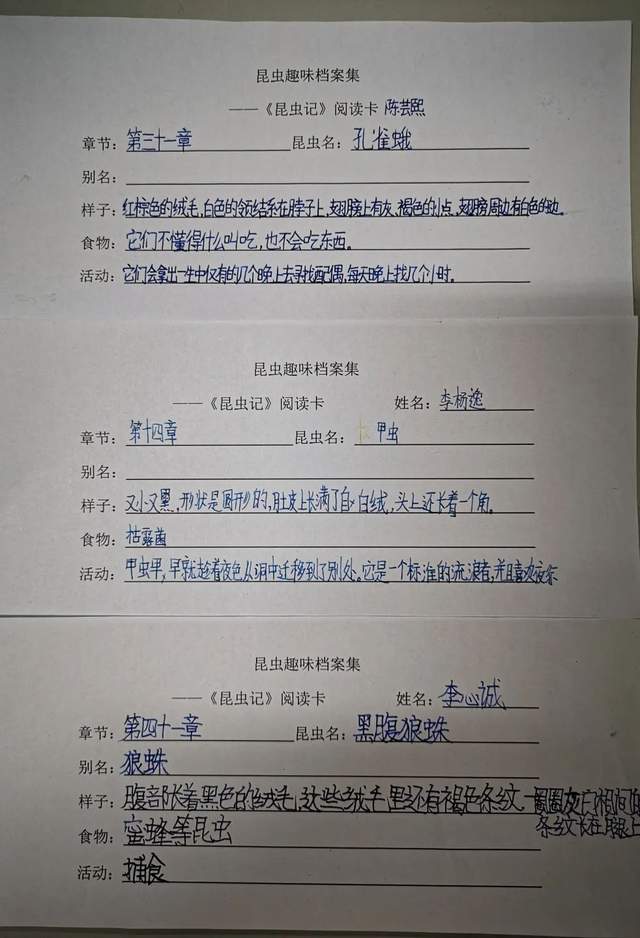 昆虫趣味档案集
——《昆虫记》阅读卡 陈芸熙
章节：第三十一章 昆虫名：孔雀蛾
别名：
样子：红棕色的绒毛，白色的领结系在脖子上，翅膀上有灰、褐色的小点，翅膀周边有白色的边。
食物：它们不懂得什么叫吃，也不会吃东西。
活动：它们会拿出一生中仅有的几个晚上去寻找配偶，每天晚上找几个小时。
昆虫趣味档案集
——《昆虫记》阅读卡 姓名：李杨逸
章节：第十四章 昆虫名：甲虫
别名：
样子：又小又黑，形状是圆形的，肚皮上长满了白白绒，头上还长着一个角。
食物：枯露菌
活动：甲虫早，早就趁着夜色从洞中迁移到了别处。它是一个标准的流浪者，并且喜欢夜
昆虫趣味档案集
——《昆虫记》阅读卡 姓名：李心诚
章节：第四十一章 昆虫名：黑腹狼蛛
别名：狼蛛
样子：腹部长着黑色的绒毛，这些绒毛里还有褐色条纹。一圈圈灰白相间的
条纹长在腿上
食物：蜜蜂等昆虫
活动：捕食